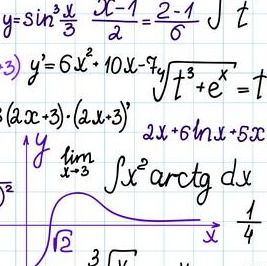 y=sin³ x/3 x-1/2 = 2-1/6 ∫ t
+3) y'=6x²+10x-7y √t³+e^x = t
(2x+3)·(2x+3)'
2x+6lnx+5x
y lim x→3 ∫x² arctg dx
)²
√2 x 1/4
³√x